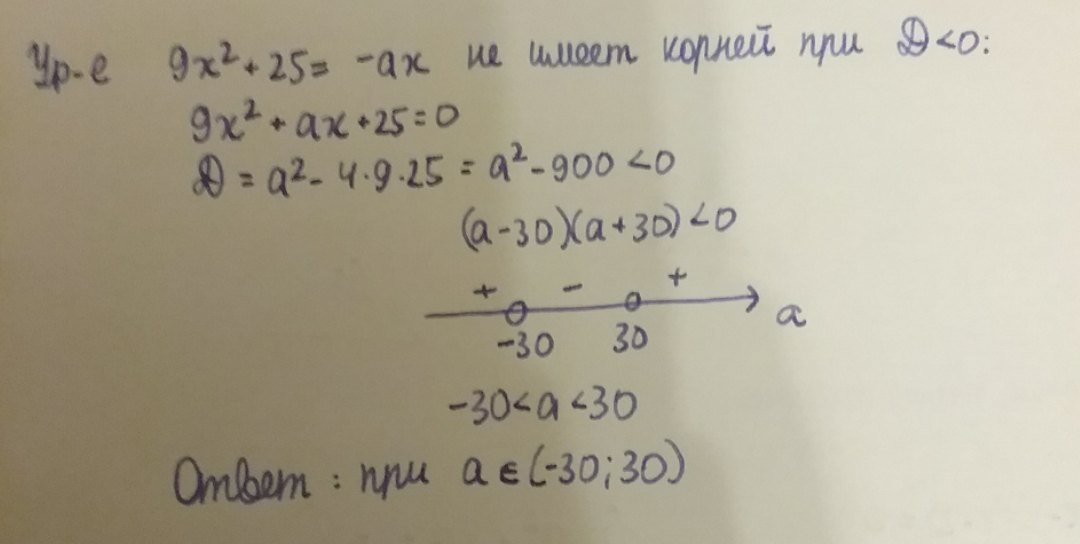 Ур-е 9x² + 25 = -ax не имеет корней при D<0:
9x² + ax + 25 = 0
D = a² - 4·9·25 = a² - 900 < 0
(a-30)(a+30) < 0
+ - +
-30 30 a
-30 < a < 30
Ответ: при a ∈ (-30; 30)